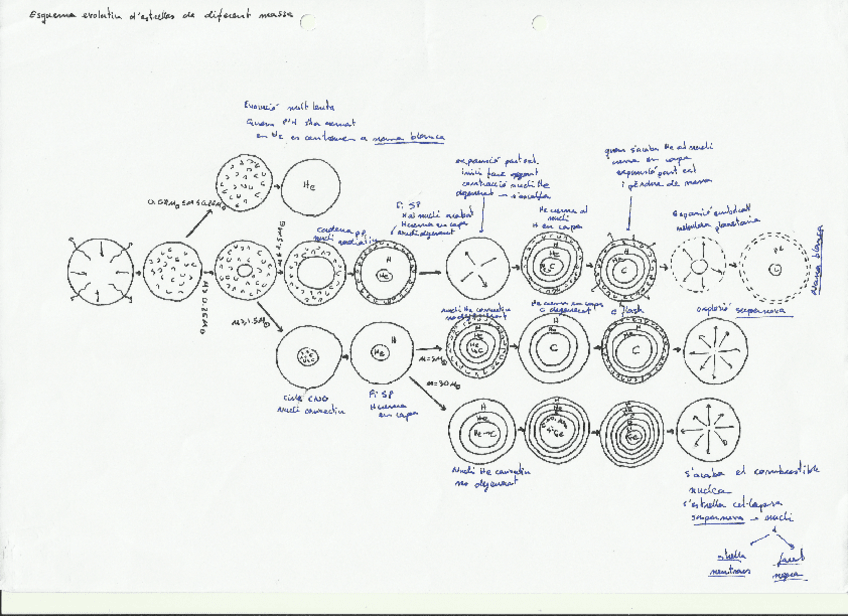 Esquema evolutiu d'estrelles de diferent massa
Evolució molt lenta
Quan l'H s'ha cremat
en He es contrau a nana blanca
He
cadena PP
nucli radiatiu
Fi SP
H al nucli acabat
H crema en capa
nucli degenerat
H
He
expansió part ext.
inici fase gegant
contracció nucli He
degenerat → s'escalfa
He crema al nucli
H en capa
H
He
C
quan s'acaba He al nucli
crema en capa
expansió part ext
i pèrdua de massa
H
He
C
nebulosa planetària
He
C
Nana blanca
M>1.5M☉
Cicle CNO
nucli convectiu
H
He
Fi SP
H crema
en capa
M=5M☉
M=30M☉
nucli He convectiu
no degenerat
H
He
He crema en capa
C degenerat
H
He
C
C flash
H
He
C
explosió supernova
H
He
He→C
Nucli He convectiu
no degenerat
H
He
H
He
s'acaba el combustible
nuclear
s'estrella col·lapsa
supernova → nucli
estrella
neutrons
forat
negre